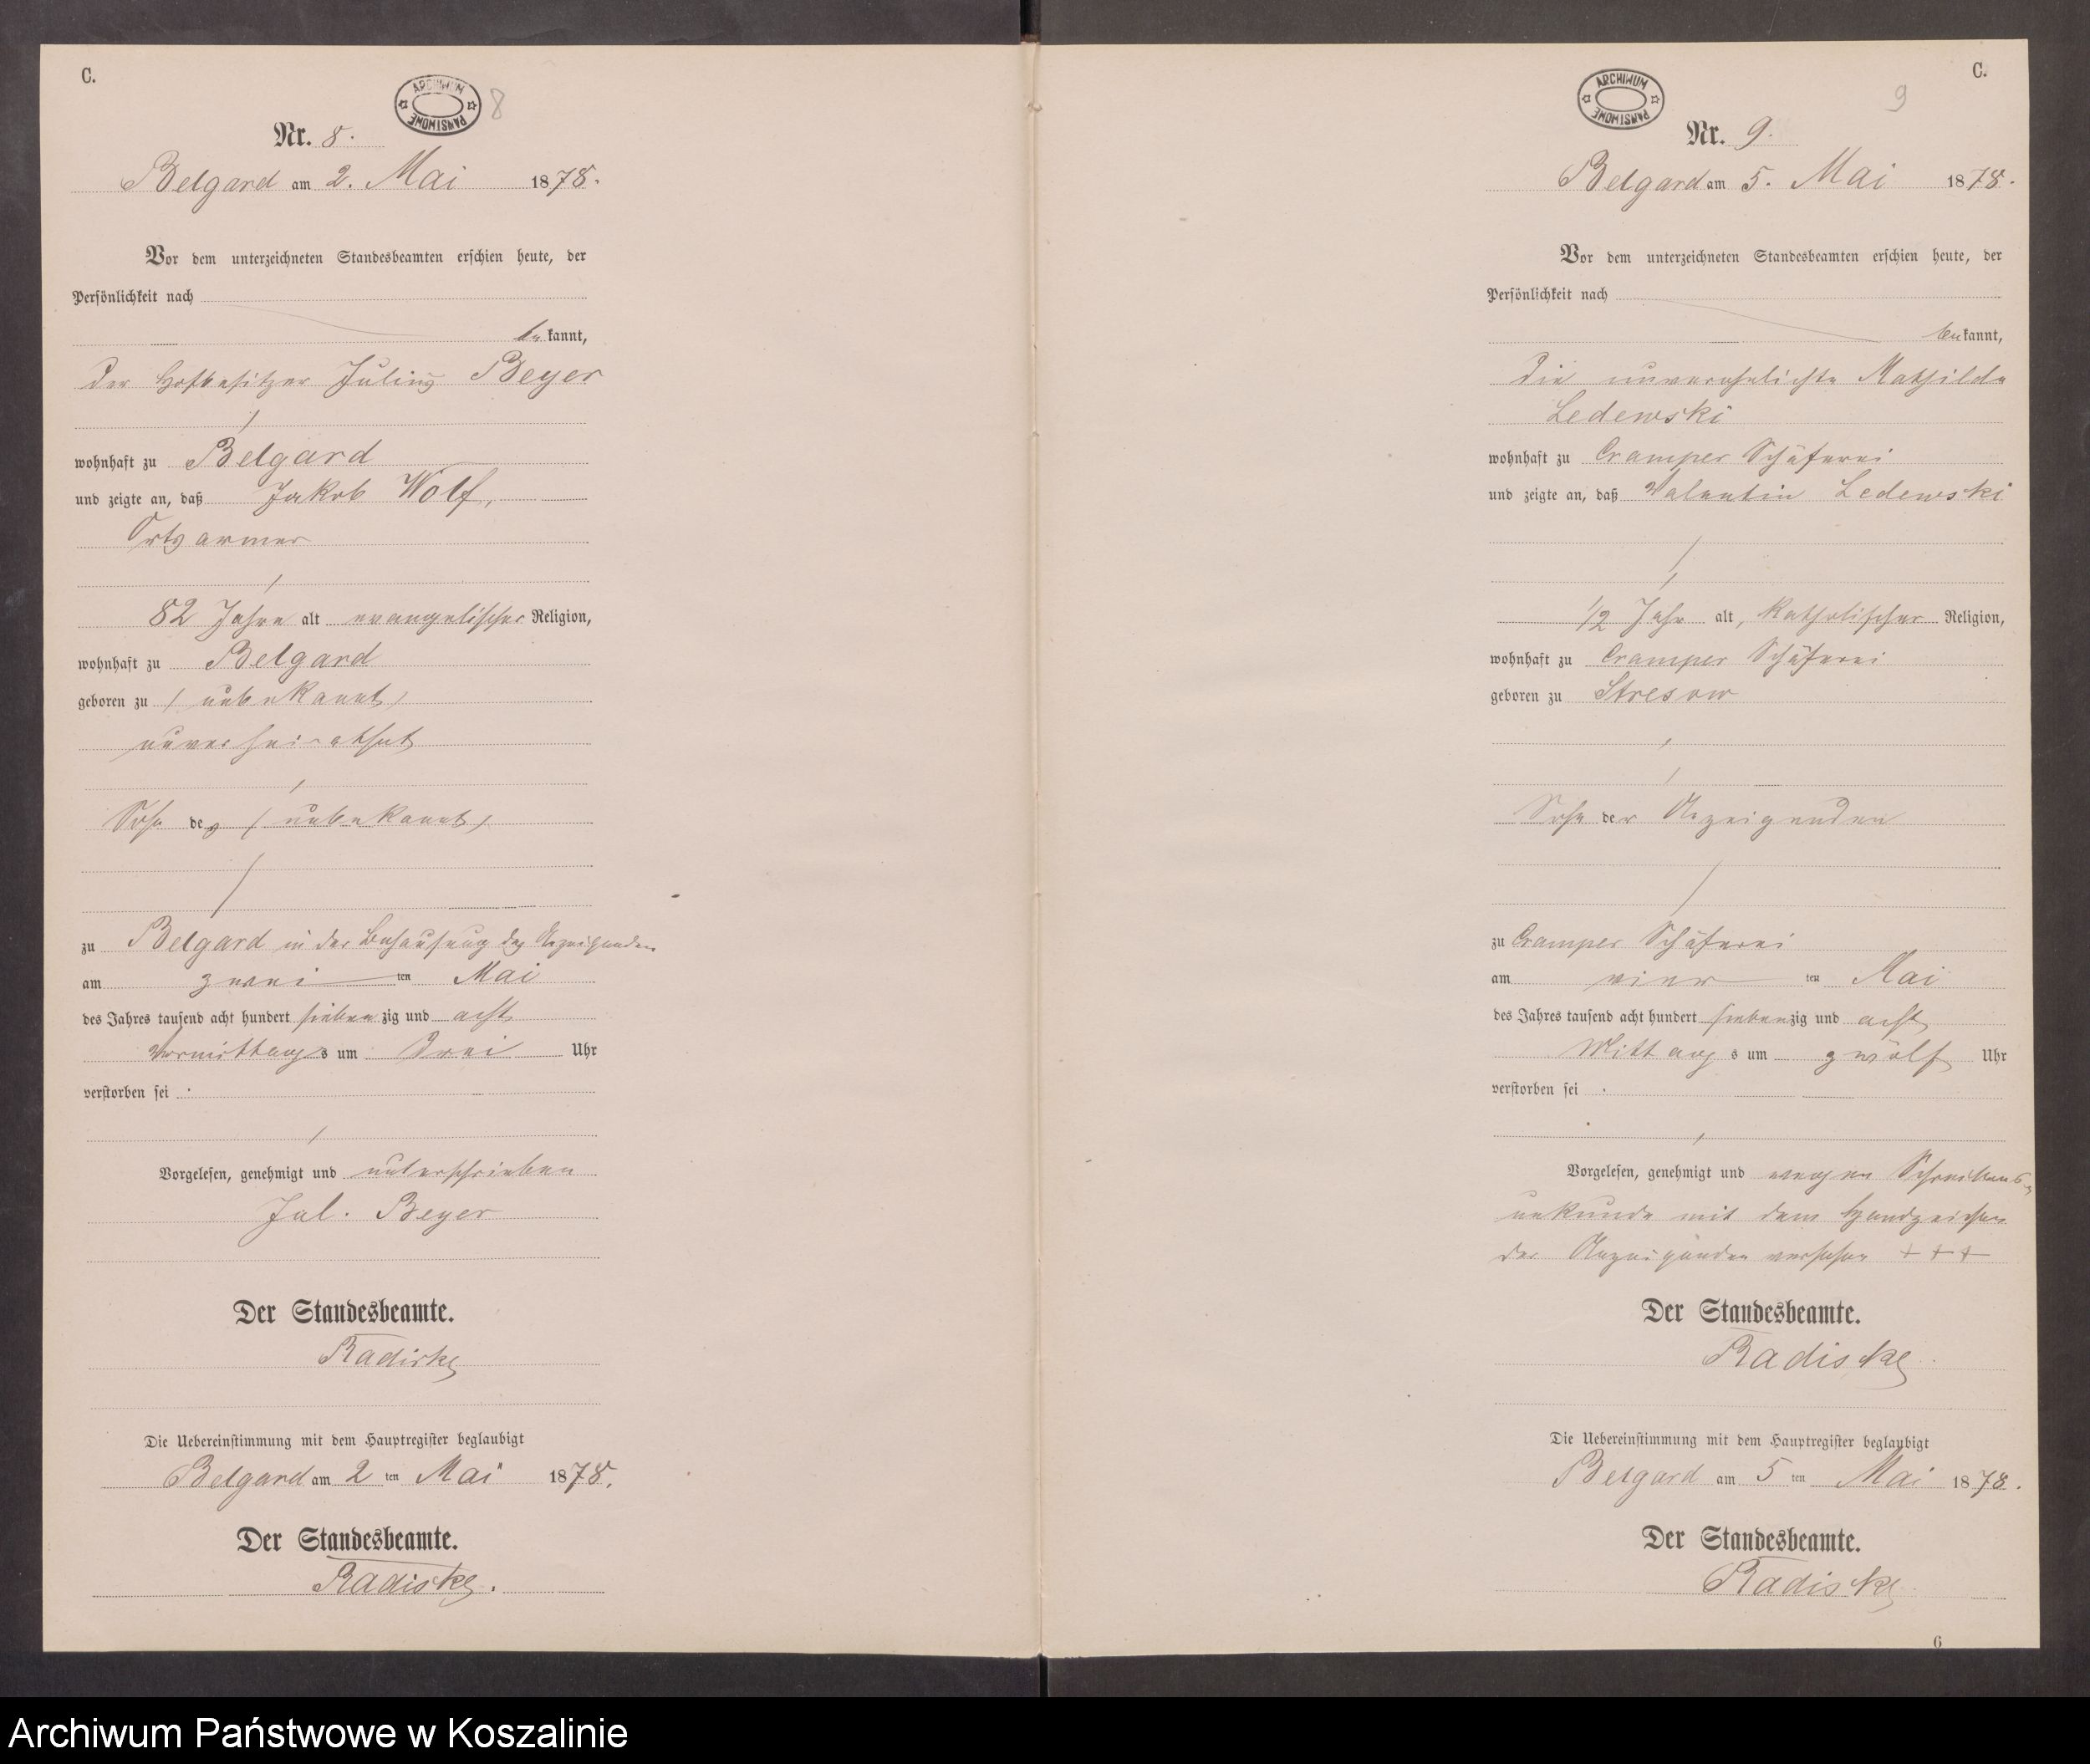 C.
ARCHIWUM PAŃSTWOWE
8
Nr. 8.
Belgard am 2. Mai 1878.
Vor dem unterzeichneten Standesbeamten erschien heute, der
Persönlichkeit nach
bekannt,
der Hofbesitzer Julius Beyer
wohnhaft zu Belgard
und zeigte an, daß Jakob Wolf,
Ortsarmer
82 Jahre alt evangelischer Religion,
wohnhaft zu Belgard
geboren zu (unbekannt)
unverheirathet
Sohn des (unbekannt)
zu Belgard in der Behausung des Anzeigenden
am zwei ten Mai
des Jahres tausend acht hundert siebenzig und acht
Vormittags um drei Uhr
verstorben sei .
Vorgelesen, genehmigt und unterschrieben
Jul. Beyer
Der Standesbeamte.
Radiske
Die Uebereinstimmung mit dem Hauptregister beglaubigt
Belgard am 2 ten Mai 1878.
Der Standesbeamte.
Radiske.
C.
ARCHIWUM PAŃSTWOWE
9
Nr. 9.
Belgard am 5. Mai 1878.
Vor dem unterzeichneten Standesbeamten erschien heute, der
Persönlichkeit nach
bekannt,
die unverehelichte Mathilde
Ledewski
wohnhaft zu Cramper Schäferei
und zeigte an, daß Valentin Ledewski
1/2 Jahr alt, katholischer Religion,
wohnhaft zu Cramper Schäferei
geboren zu Stresow
Sohn der Anzeigenden
zu Cramper Schäferei
am vier ten Mai
des Jahres tausend acht hundert siebenzig und acht
Mittags um zwölf Uhr
verstorben sei .
Vorgelesen, genehmigt und wegen Schreibens-
unkunde mit dem Handzeichen
der Anzeigenden versehen + + +
Der Standesbeamte.
Radiske
Die Uebereinstimmung mit dem Hauptregister beglaubigt
Belgard am 5 ten Mai 1878.
Der Standesbeamte.
Radiske
6
Archiwum Państwowe w Koszalinie